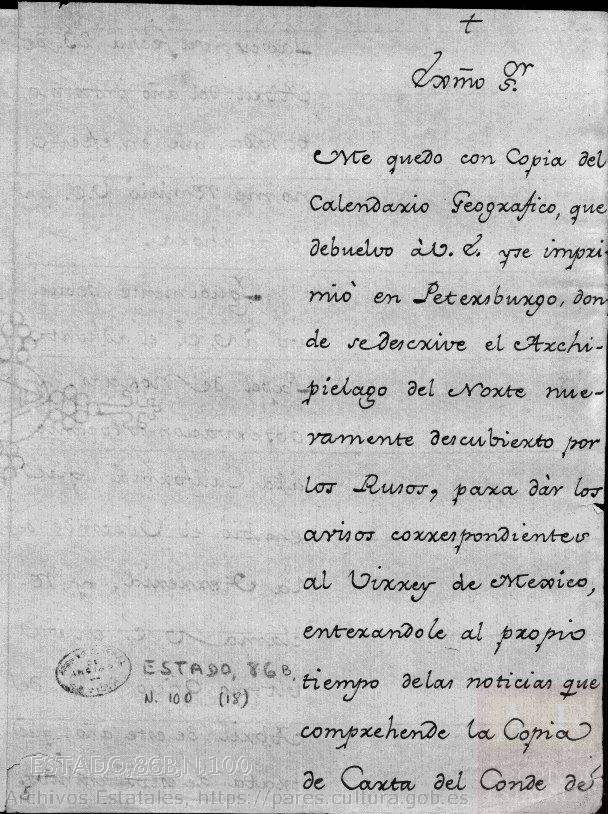 +
Exmo Sor.
Me quedo con Copia del
Calendario Geografico, que
debuelvo à V. E. y se impri
miò en Petersburgo, don
de se descrive el Archi-
pielago del Norte nue-
vamente descubierto por
los Rusos, para dàr los
avisos correspondientes
al Virrey de Mexico,
enterandole al propio
tiempo de las noticias que
comprehende la Copia
de Carta del Conde de
ESTADO, 86B,
N. 100 (18)
ESTADO,86B,N.100
Archivos Estatales, https://pares.cultura.gob.es